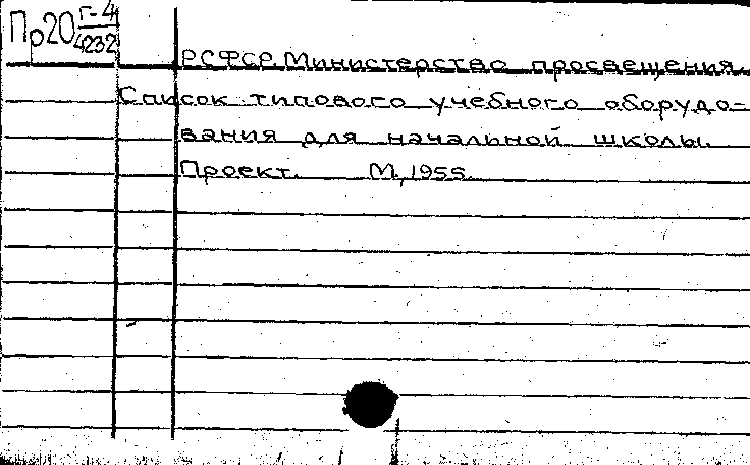 Пр20 Г-4/4232
РСФСР. Министерство просвещения.
Список типового учебного оборудо-
вания для начальной школы.
Проект. М, 1955.